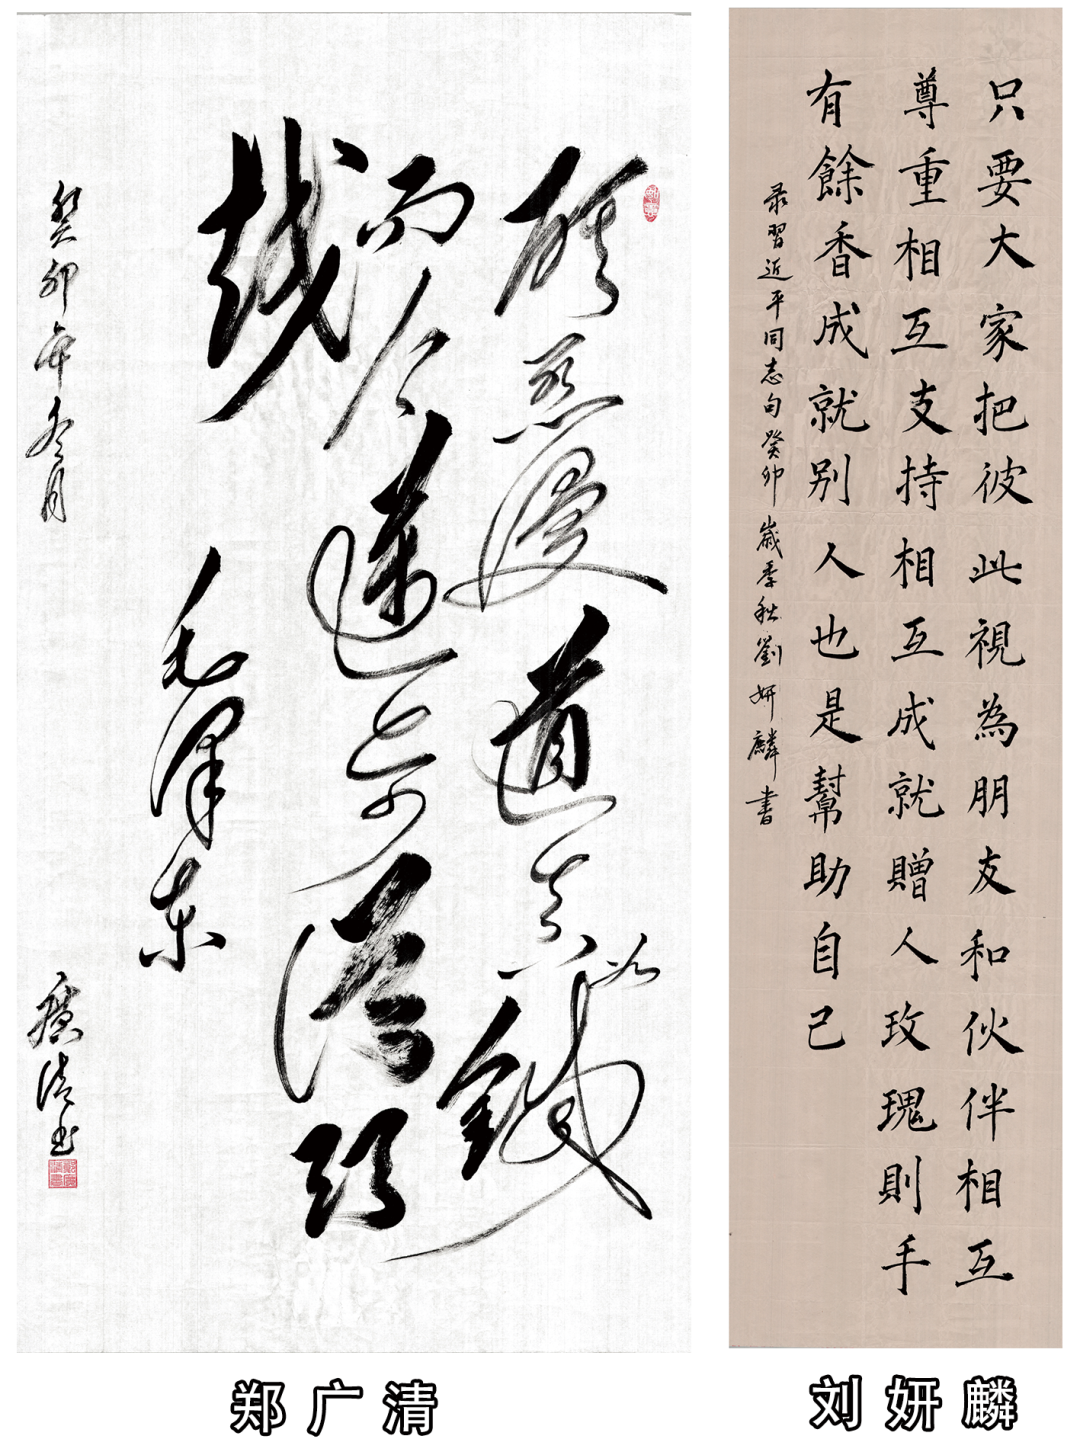 雄关漫道真如鐵
而今邁步從頭
越
毛澤東
癸卯年冬月
廣清书
郑广清
只要大家把彼此視為朋友和伙伴相互
尊重相互支持相互成就贈人玫瑰則手
有餘香成就别人也是幫助自己
录習近平同志句癸卯歲季秋劉妍麟書
刘妍麟